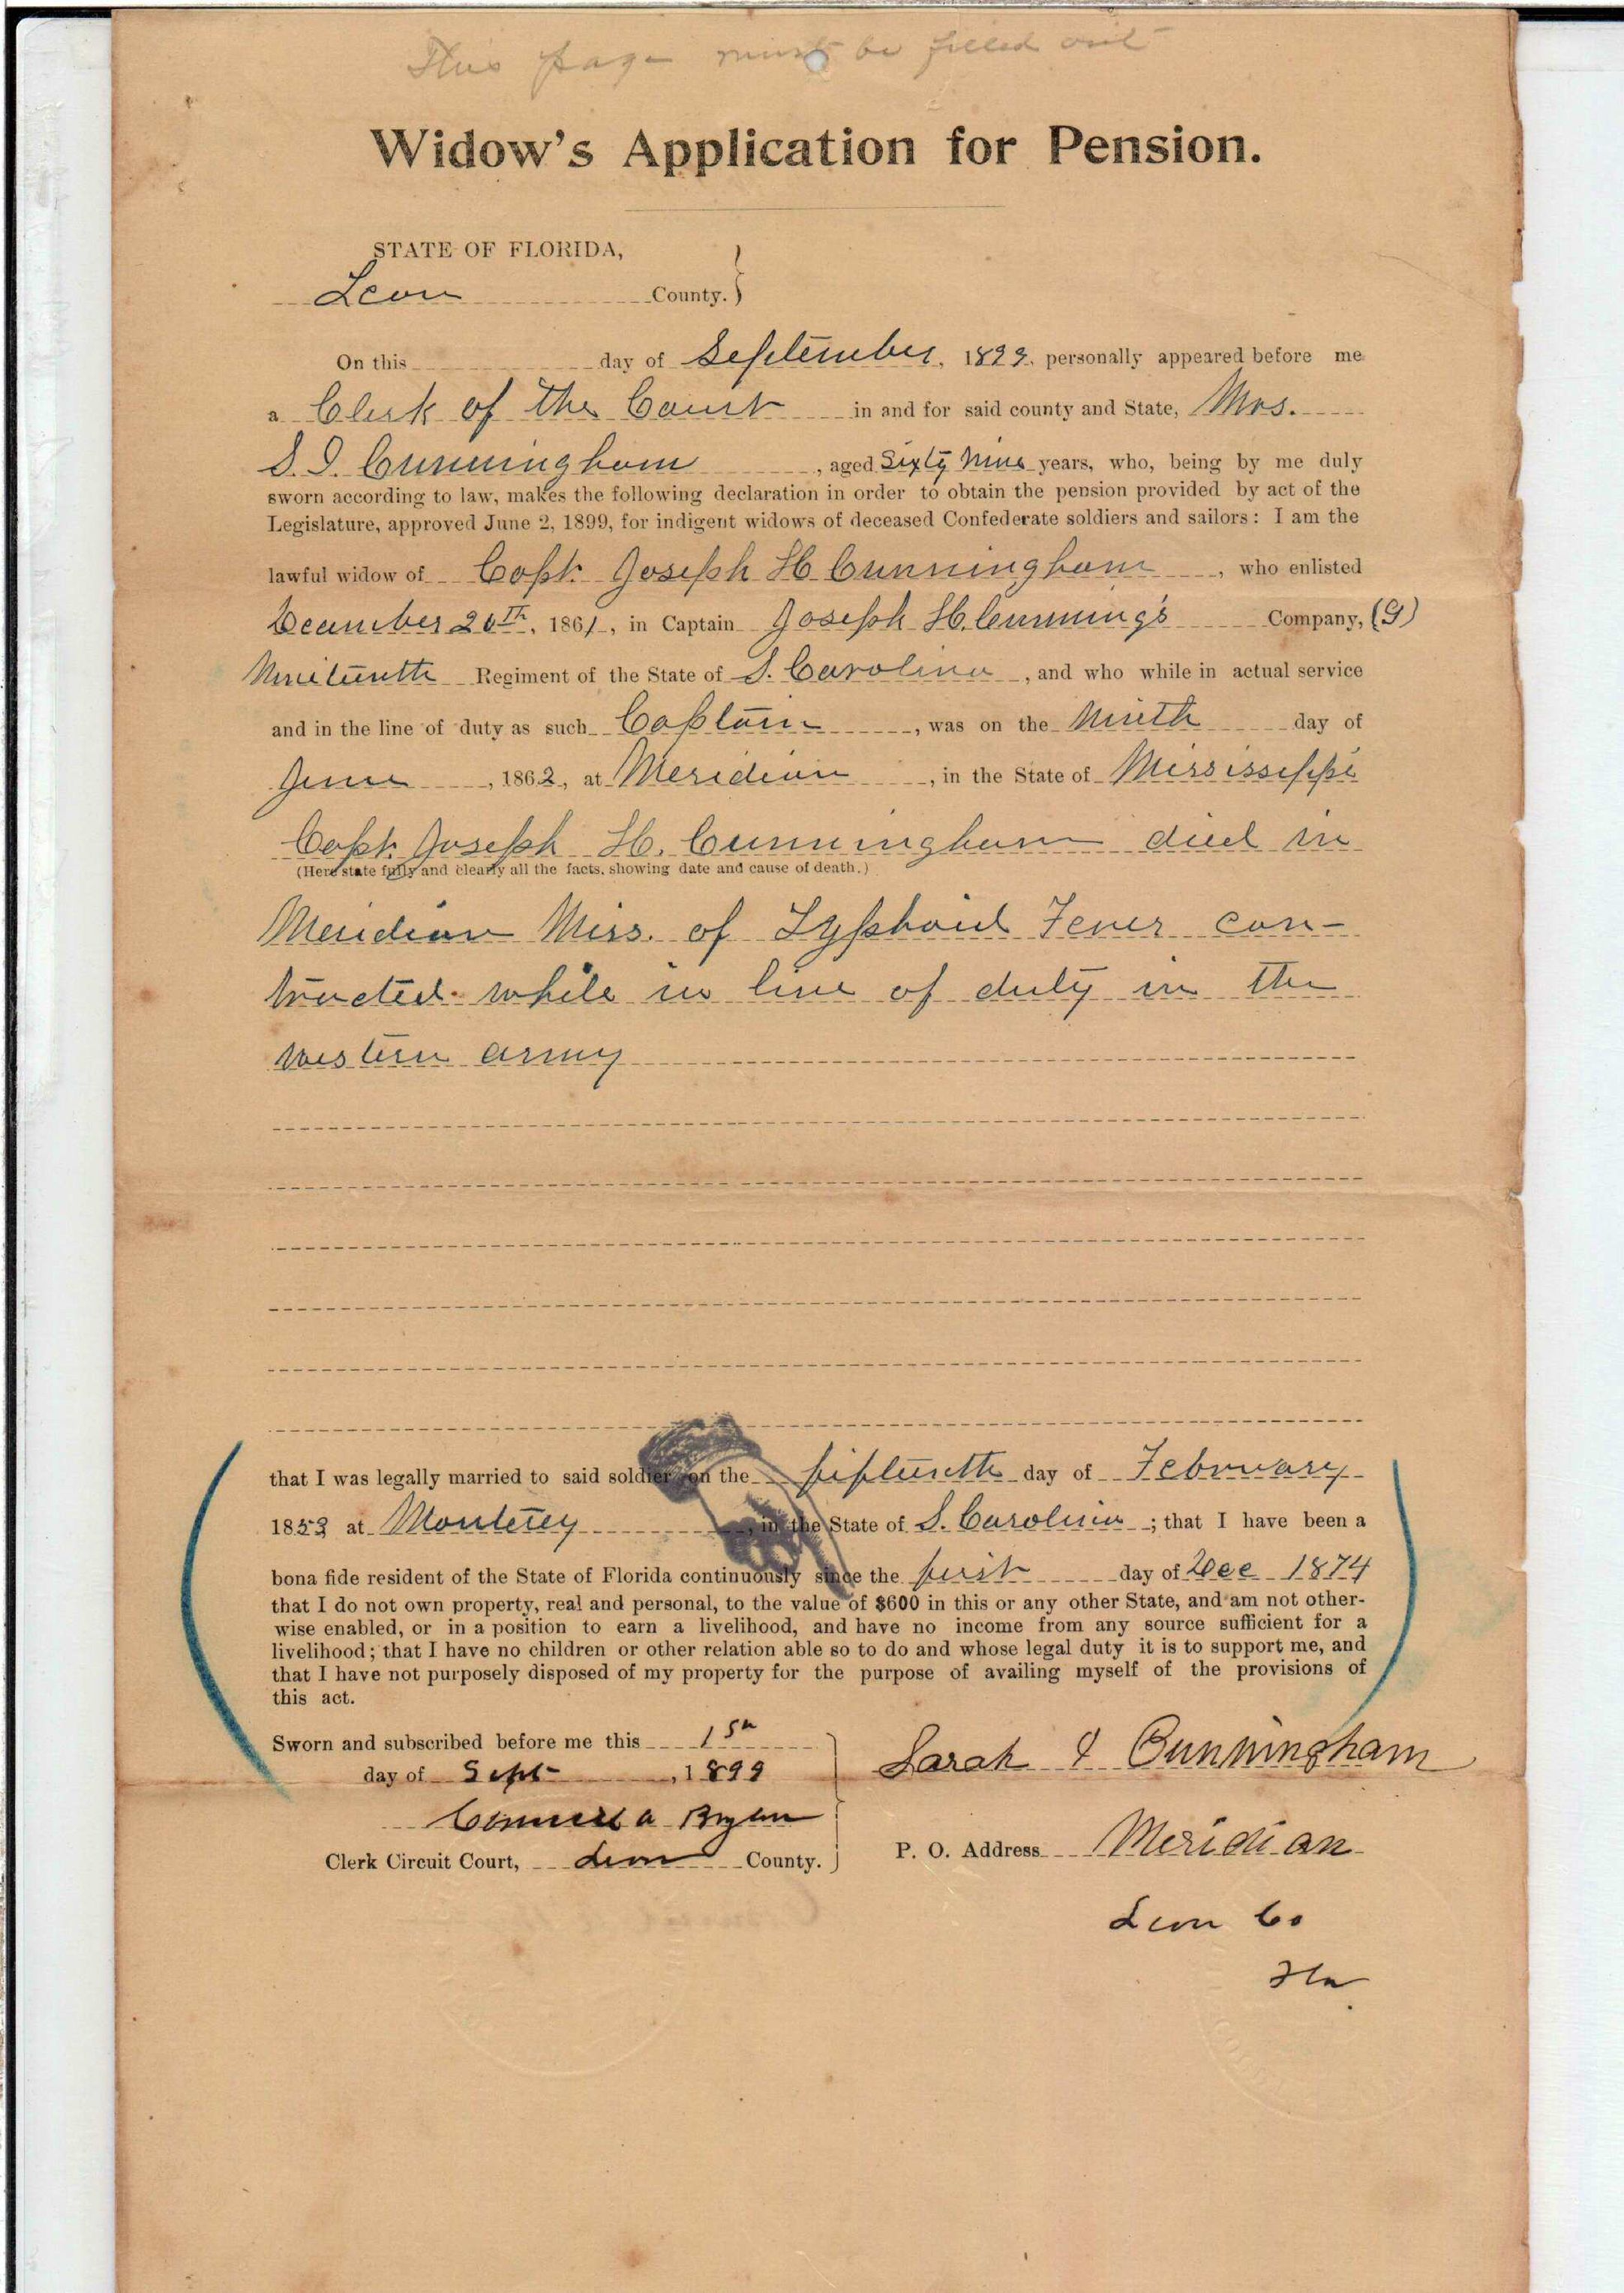 This page must be filled out
Widow's Application for Pension.
STATE OF FLORIDA,
Leon County.
On this day of September, 1899, personally appeared before me
a Clerk of the Court in and for said county and State, Mrs.
S. I. Cunningham, aged Sixty Nine years, who, being by me duly
sworn according to law, makes the following declaration in order to obtain the pension provided by act of the
Legislature, approved June 2, 1899, for indigent widows of deceased Confederate soldiers and sailors: I am the
lawful widow of Capt. Joseph H Cunningham, who enlisted
December 20th, 1861, in Captain Joseph H. Cunning's Company, (G)
Nineteenth Regiment of the State of S. Carolina, and who while in actual service
and in the line of duty as such Captain, was on the Ninth day of
June, 1862, at Meridian, in the State of Mississippi
Capt. Joseph H. Cunningham died in
(Here state fully and clearly all the facts, showing date and cause of death.)
Meridian Miss. of Typhoid Fever con-
tracted while in line of duty in the
western army
that I was legally married to said soldier on the fifteenth day of February
1853 at Monterey, in the State of S. Carolina; that I have been a
bona fide resident of the State of Florida continuously since the first day of Dec 1874
that I do not own property, real and personal, to the value of $600 in this or any other State, and am not other-
wise enabled, or in a position to earn a livelihood, and have no income from any source sufficient for a
livelihood; that I have no children or other relation able so to do and whose legal duty it is to support me, and
that I have not purposely disposed of my property for the purpose of availing myself of the provisions of
this act.
Sworn and subscribed before me this
day of Sept, 1899
Sarah I Cunningham
Council A Bryan
Clerk Circuit Court, Leon County.
P. O. Address Meridian
Leon Co
Fla